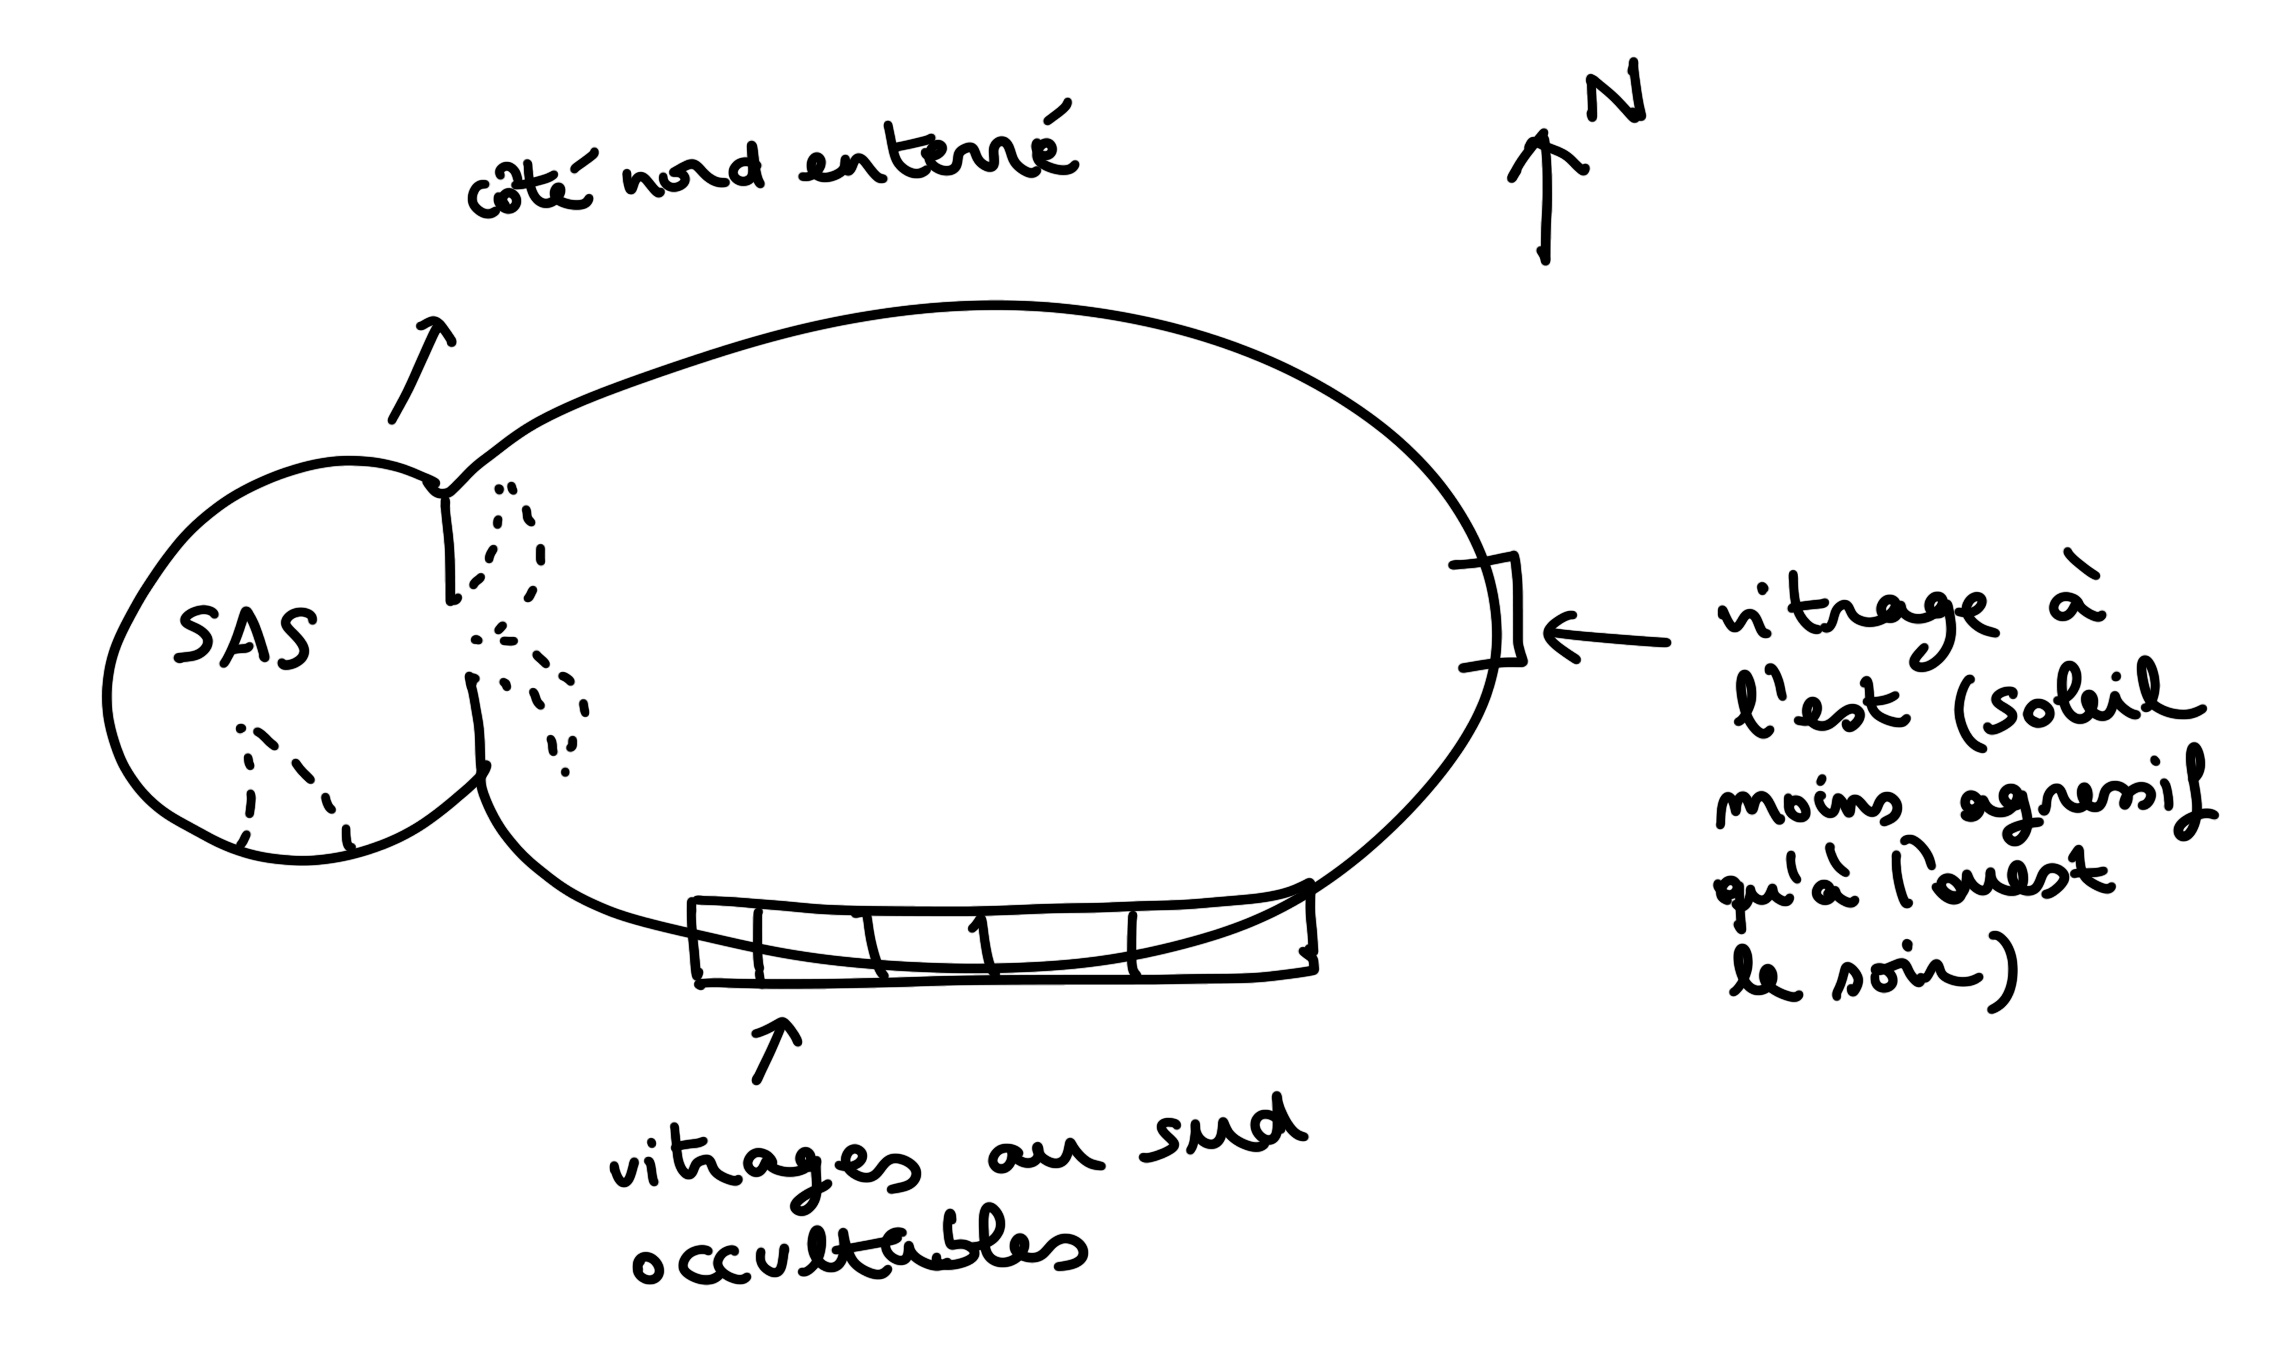 N
côté nord enterré
SAS
vitrage à
l'est (soleil
moins agressif
qu'à l'ouest
le soir)
vitrages au sud
occultables